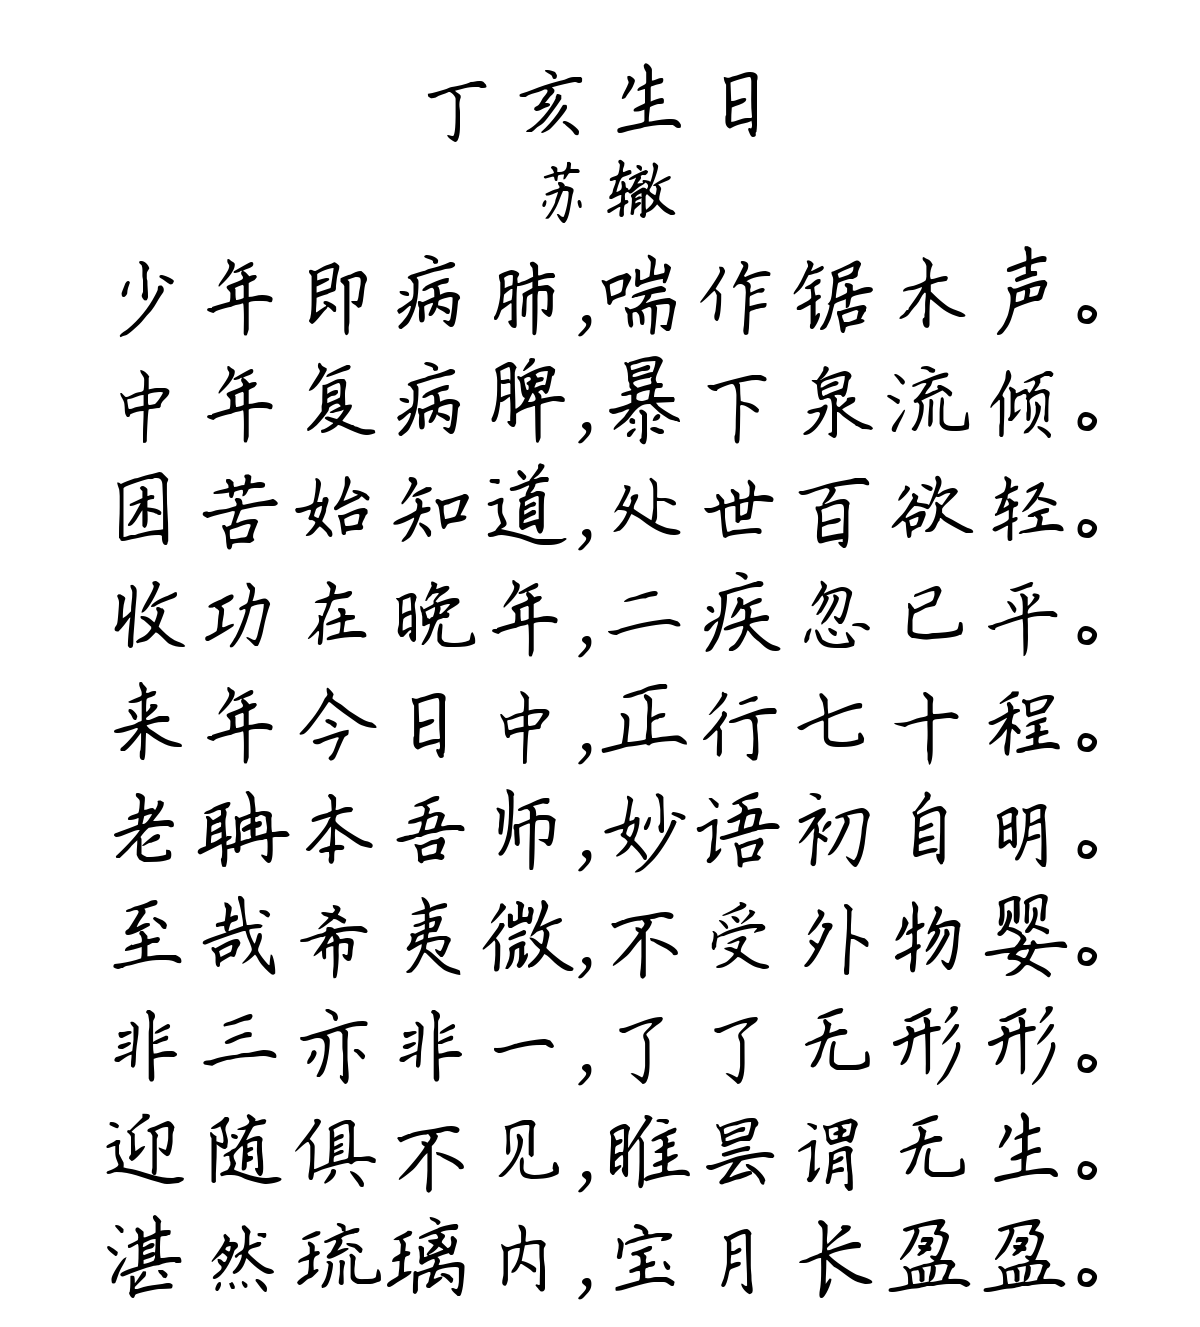 丁亥生日
苏辙
少年即病肺,喘作锯木声。
中年复病脾,暴下泉流倾。
困苦始知道,处世百欲轻。
收功在晚年,二疾忽已平。
来年今日中,正行七十程。
老聃本吾师,妙语初自明。
至哉希夷微,不受外物婴。
非三亦非一,了了无形形。
迎随俱不见,睢昙谓无生。
湛然琉璃内,宝月长盈盈。